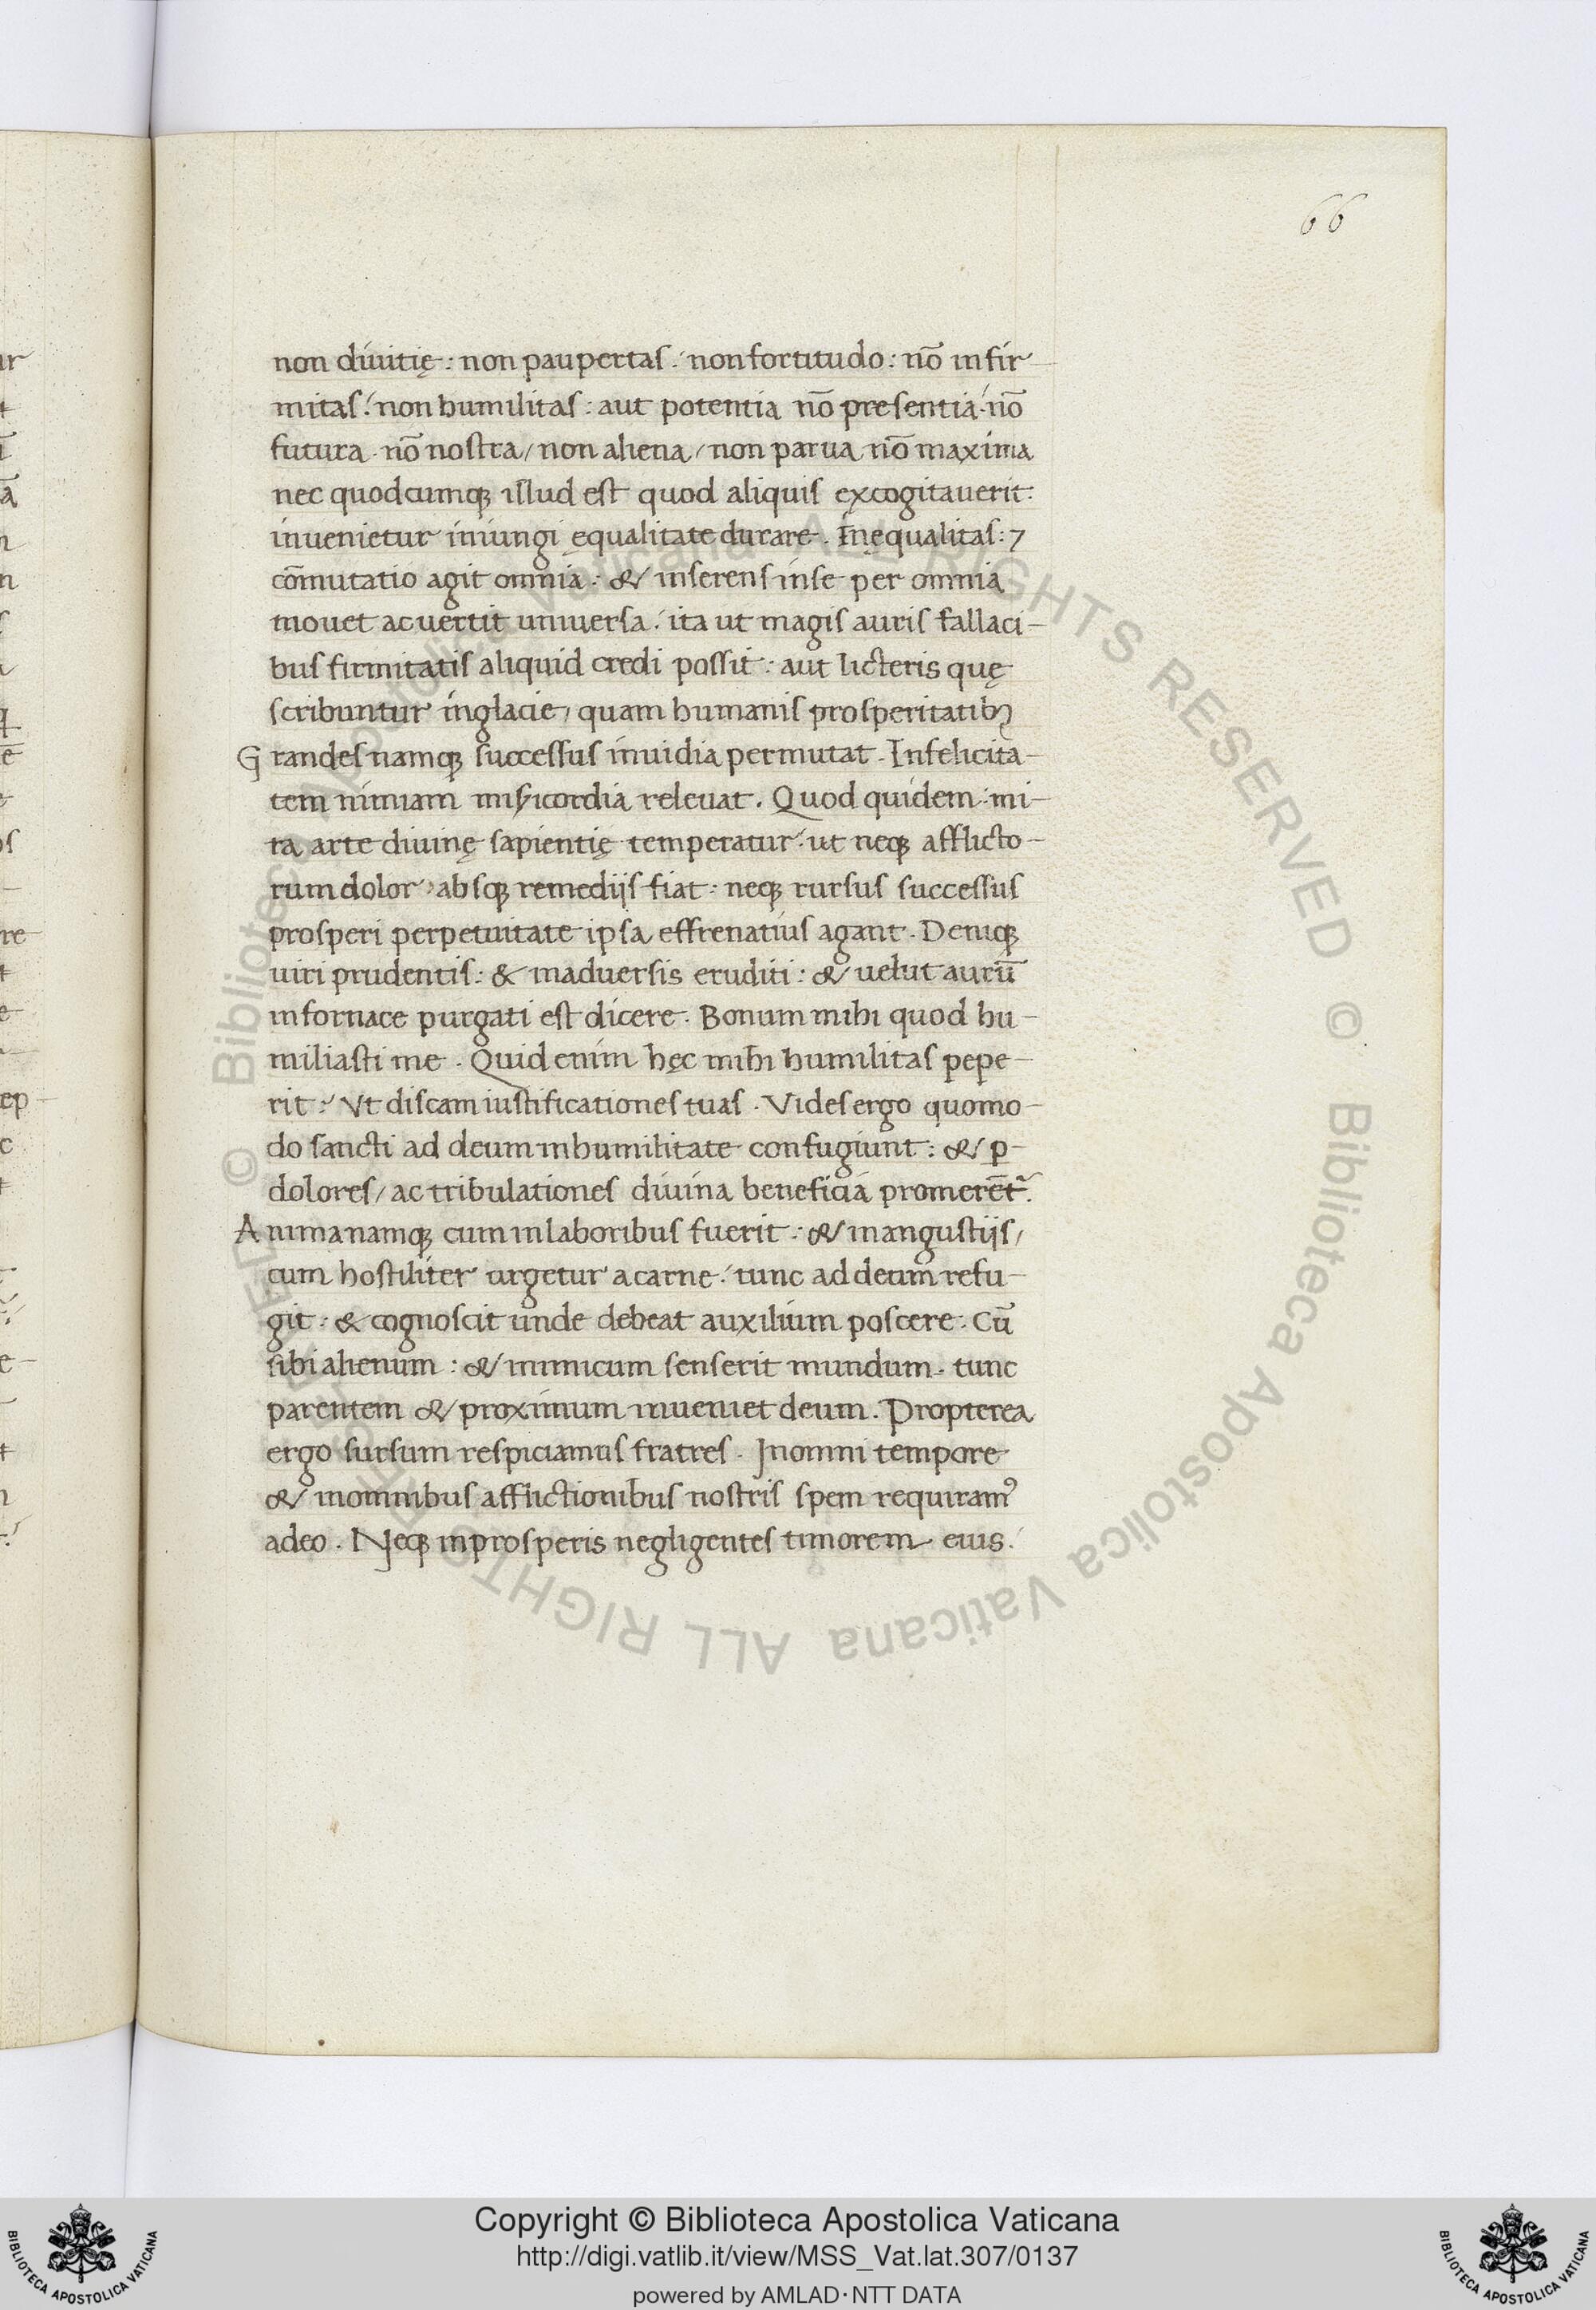 66
non diuitię : non paupertas : non fortitudo : nō infir-
mitas : non humilitas : aut potentia nō presentia · nō
futura · nō nostra / non aliena / non parua nō maxima
nec quodcumqȝ illud est quod aliquis excogitauerit :
inuenietur iniungi ęqualitate durare . Inęqualitas : ⁊
cōmutatio agit omnia : & inserens inse per omnia
mouet ac uertit uniuersa : ita ut magis auris fallaci-
bus firmitatis aliquid credi possit : aut licteris quę
scribuntur inglacie / quam humanis prosperitatibȝ
Grandes namqȝ successus inuidia permutat . Infelicita-
tem nimiam misicordia releuat . Quod quidem : mi-
ra arte diuinę sapientię temperatur : ut neqȝ afflicto-
rum dolor absqȝ remedijs fiat : neqȝ rursus successus
prosperi perpetuitate ipsa effrenatius agant . Deniqȝ
uiri prudentis : & inaduersis eruditi : & uelut aurū
infornace purgati est dicere . Bonum mihi quod hu-
miliasti me . Quid enim hęc mihi humilitas pepe-
rit : Vt discam iustificationes tuas . Vides ergo quomo-
do sancti ad deum inhumilitate confugiunt : & p-
dolores / ac tribulationes diuina beneficia promerēt̃ .
Anima namqȝ cum inlaboribus fuerit : & inangustijs /
cum hostiliter urgetur a carne : tunc ad deum refu-
git : & cognoscit unde debeat auxilium poscere . Cū
sibi alienum : & inimicum senserit mundum . tunc
parentem & proximum inueniet deum . Propterea
ergo sursum respiciamus fratres . Inomni tempore
& inomnibus afflictionibus nostris spem requiramꝰ
adeo . Neqȝ inprosperis negligentes timorem eius .
© Biblioteca Apostolica Vaticana ALL RIGHTS RESERVED © Biblioteca Apostolica Vaticana ALL RIGHTS RESERVED
Copyright © Biblioteca Apostolica Vaticana
http://digi.vatlib.it/view/MSS_Vat.lat.307/0137
powered by AMLAD·NTT DATA
BIBLIOTECA APOSTOLICA VATICANA
BIBLIOTECA APOSTOLICA VATICANA